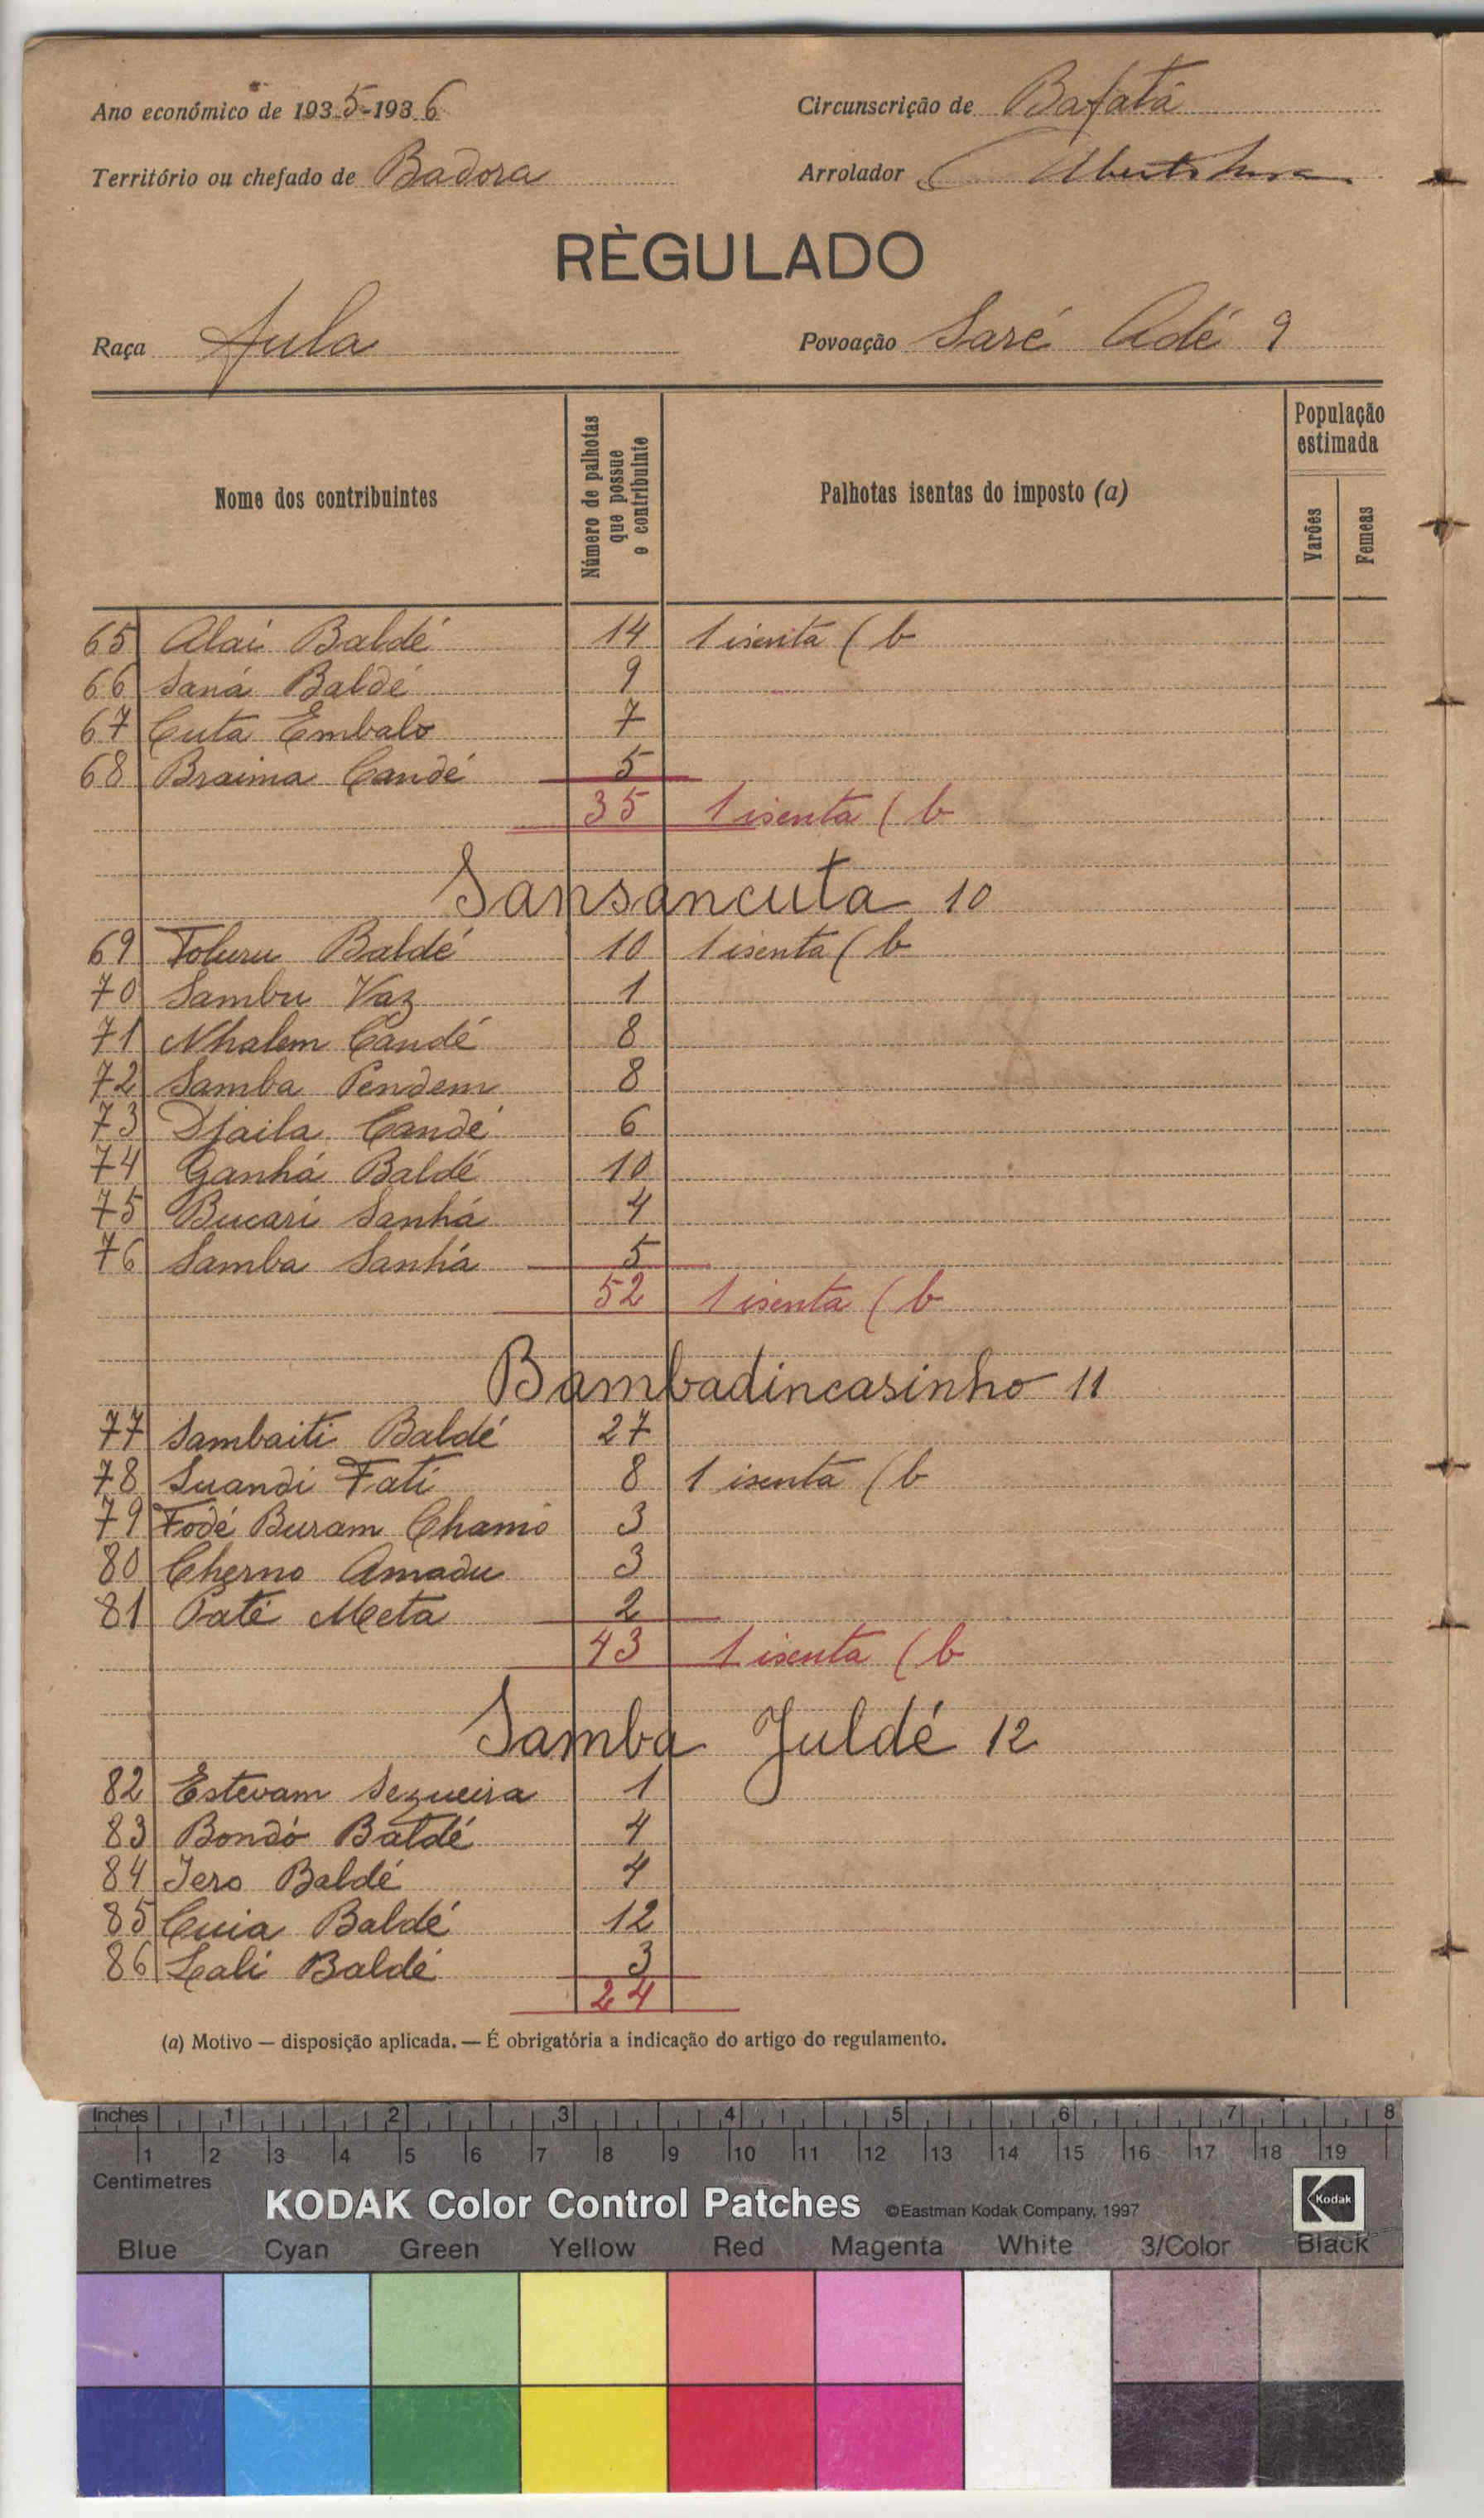 Ano económico de 1935-1936
Circunscrição de Bafatá
Território ou chefado de Badora
Arrolador
RÈGULADO
Raça Fula
Povoação Saré Adé 9
Nome dos contribuintes
Número de palhotas que possue o contribuinte
Palhotas isentas do imposto (a)
População estimada
Varões
Femeas
65 Alai Baldé 14 1 isenta (b
66 Saná Baldé 9
67 Cuta Embalo 7
68 Braima Candé 5
35 1 isenta (b
Sansancuta 10
69 Toluru Baldé 10 1 isenta (b
70 Sambu Vaz 1
71 Nhalem Candé 8
72 Samba Pendem 8
73 Djaila Candé 6
74 Ganhá Baldé 10
75 Bucari Sanhá 4
76 Samba Sanhá 5
52 1 isenta (b
Bambadincasinho 11
77 Sambaiti Baldé 27
78 Suandi Fati 8 1 isenta (b
79 Fodé Buram Chamó 3
80 Cherno Amadu 3
81 Paté Meta 2
43 1 isenta (b
Samba Juldé 12
82 Estevam Sequeira 1
83 Bondó Baldé 4
84 Iero Baldé 4
85 Cuia Baldé 12
86 Lali Baldé 3
24
(a) Motivo — disposição aplicada. — É obrigatória a indicação do artigo do regulamento.
Inches 1 2 3 4 5 6 7 8
1 2 3 4 5 6 7 8 9 10 11 12 13 14 15 16 17 18 19
Centimetres
KODAK Color Control Patches ©Eastman Kodak Company, 1997 Kodak
Blue Cyan Green Yellow Red Magenta White 3/Color Black